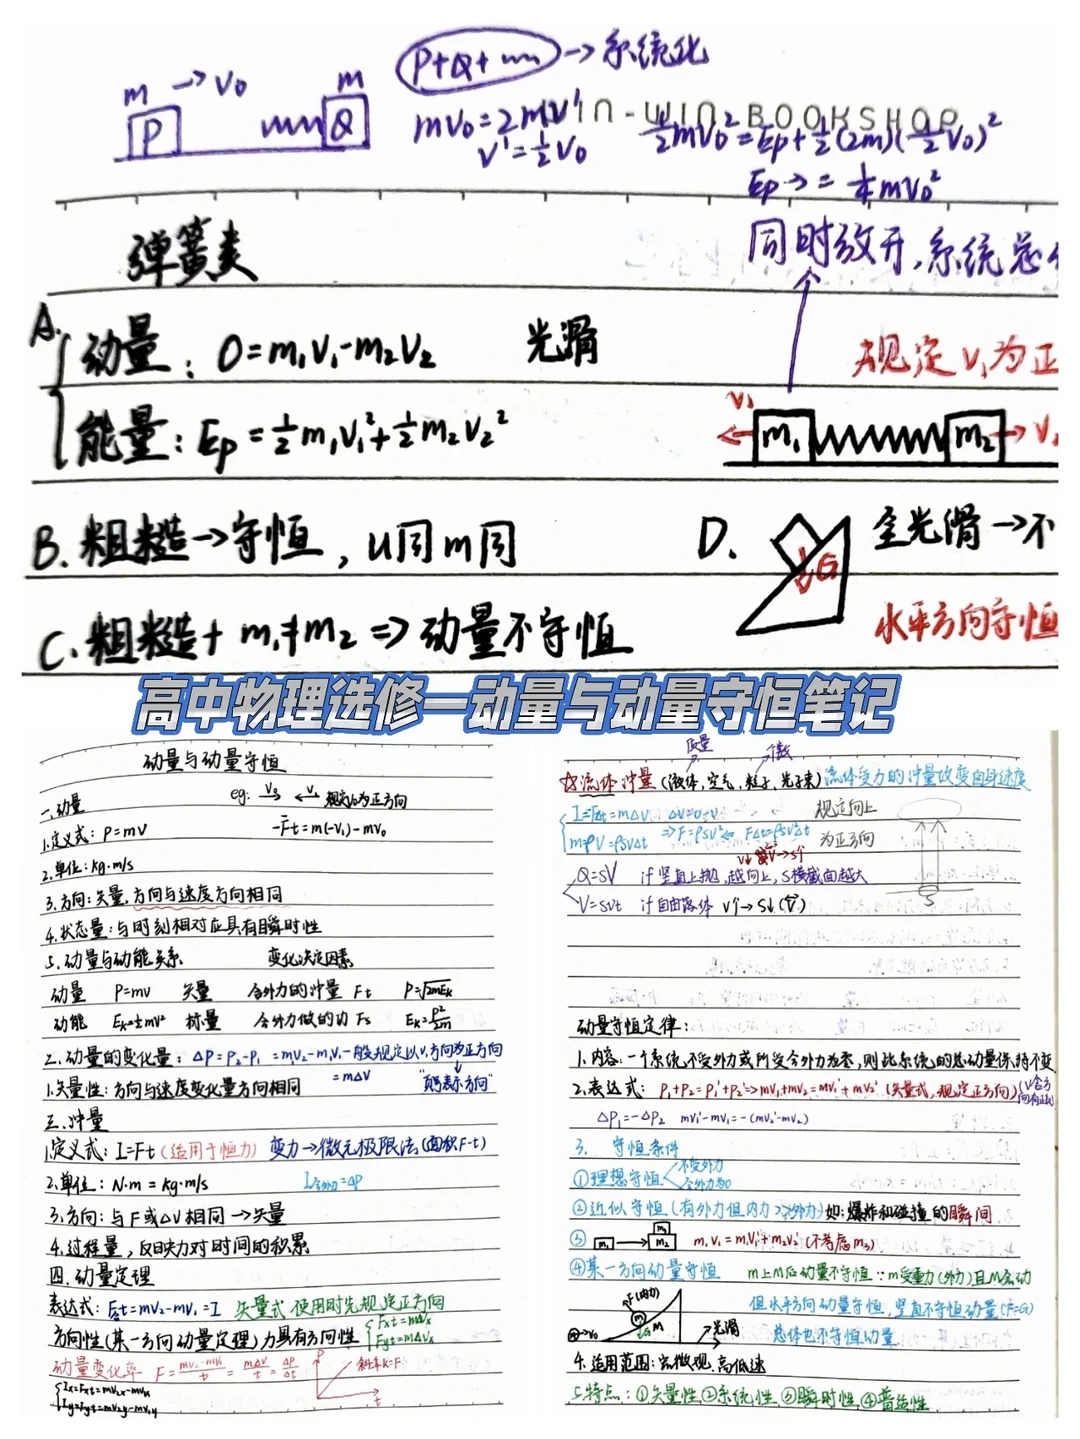 P+Q+ → 系统化
m → v₀ m
P Q
WIN-WIN BOOKSHOP
mv₀=2mv'
v'=½v₀
½mv₀²=Ep+½(2m)(½v₀)²
Ep→=¼mv₀²
弹簧类
同时放开,系统总
A.
动量:0=m₁v₁-m₂v₂ 光滑
规定v₁为正
能量:Ep=½m₁v₁²+½m₂v₂²
v₁ m₁ m₂ v₂
B.粗糙→守恒,u同m同
D. G 全光滑→不
C.粗糙+m₁≠m₂⇒动量不守恒
水平方向守恒
高中物理选修一动量与动量守恒笔记
动量与动量守恒
一.动量
eg: 规定v₀为正方向
1.定义式:P=mv
-Ft=m(-v₁)-mv₀
2.单位:kg·m/s
3.方向:矢量,方向与速度方向相同
4.状态量:与时刻相对应具有瞬时性
5.动量与动能关系 变化决定因素
动量 P=mv 矢量 合外力的冲量 Ft P=√2mEk
动能 Ek=½mv² 标量 合外力做的功 Fs Ek=P²/2m
二.动量的变化量:ΔP=P₂-P₁=mv₂-m₁v₁一般规定以v₁方向为正方向
=mΔv
1.矢量性:方向与速度变化量方向相同
三.冲量
1.定义式:I=Ft(适用于恒力) 变力→微元极限法(面积F-t)
2.单位:N·m=kg·m/s I合外力=ΔP
3.方向:与F或ΔV相同→矢量
4.过程量,反映力对时间的积累
四.动量定理
表达式:Ft=mv₂-mv₁=I 矢量式 使用时先规定正方向
方向性(某一方向动量定理)力具有方向性
Fxt=mΔvx
Fyt=mΔvy
动量变化率 F=(mv₂-mv₁)/t=mΔv/t=ΔP/Δt
P 斜率k=F t
Ix=Fxt=mv₂x-mv₁x
Iy=Fyt=mv₂y-mv₁y
质量
☆流体冲量(液体,空气,粒子,光子束)流体受力的冲量改变自身速度
I=FΔt=mΔv Δv=0-v 规定向上
m=ρV=ρSvΔt ⇒F=ρSv² ⇐ FΔt=ρSv²Δt 为正方向
Q=SV if竖直上抛,越向上,S横截面越大
V=Svt if自由落体 v↑→S↓(V)
S
动量守恒定律:
1.内容:一个系统不受外力或所受合外力为零,则此系统的总动量保持不变
2.表达式:P₁+P₂=P₁'+P₂'⇒mv₁+mv₂=mv₁'+mv₂'(矢量式,规定正方向)
ΔP₁=-ΔP₂ mv₁'-mv₁=-(mv₂'-mv₂)
3. 守恒条件
①理想守恒
不受外力
合外力为0
②近似守恒(有外力但内力>>外力)如:爆炸和碰撞的瞬间
③ m₁ m₂ m₃ m₁v₁=m₁v₁'+m₂v₂'(不考虑m₃)
④某一方向动量守恒 m上M后动量不守恒∵m受重力(外力)且M会动
F(内力) m G M →v₀ 光滑
但水平方向动量守恒,竖直不守恒动量(F=G)
总体也不守恒动量
4.适用范围:宏微观,高低速
5.特点:①矢量性②系统性③瞬时性④普适性